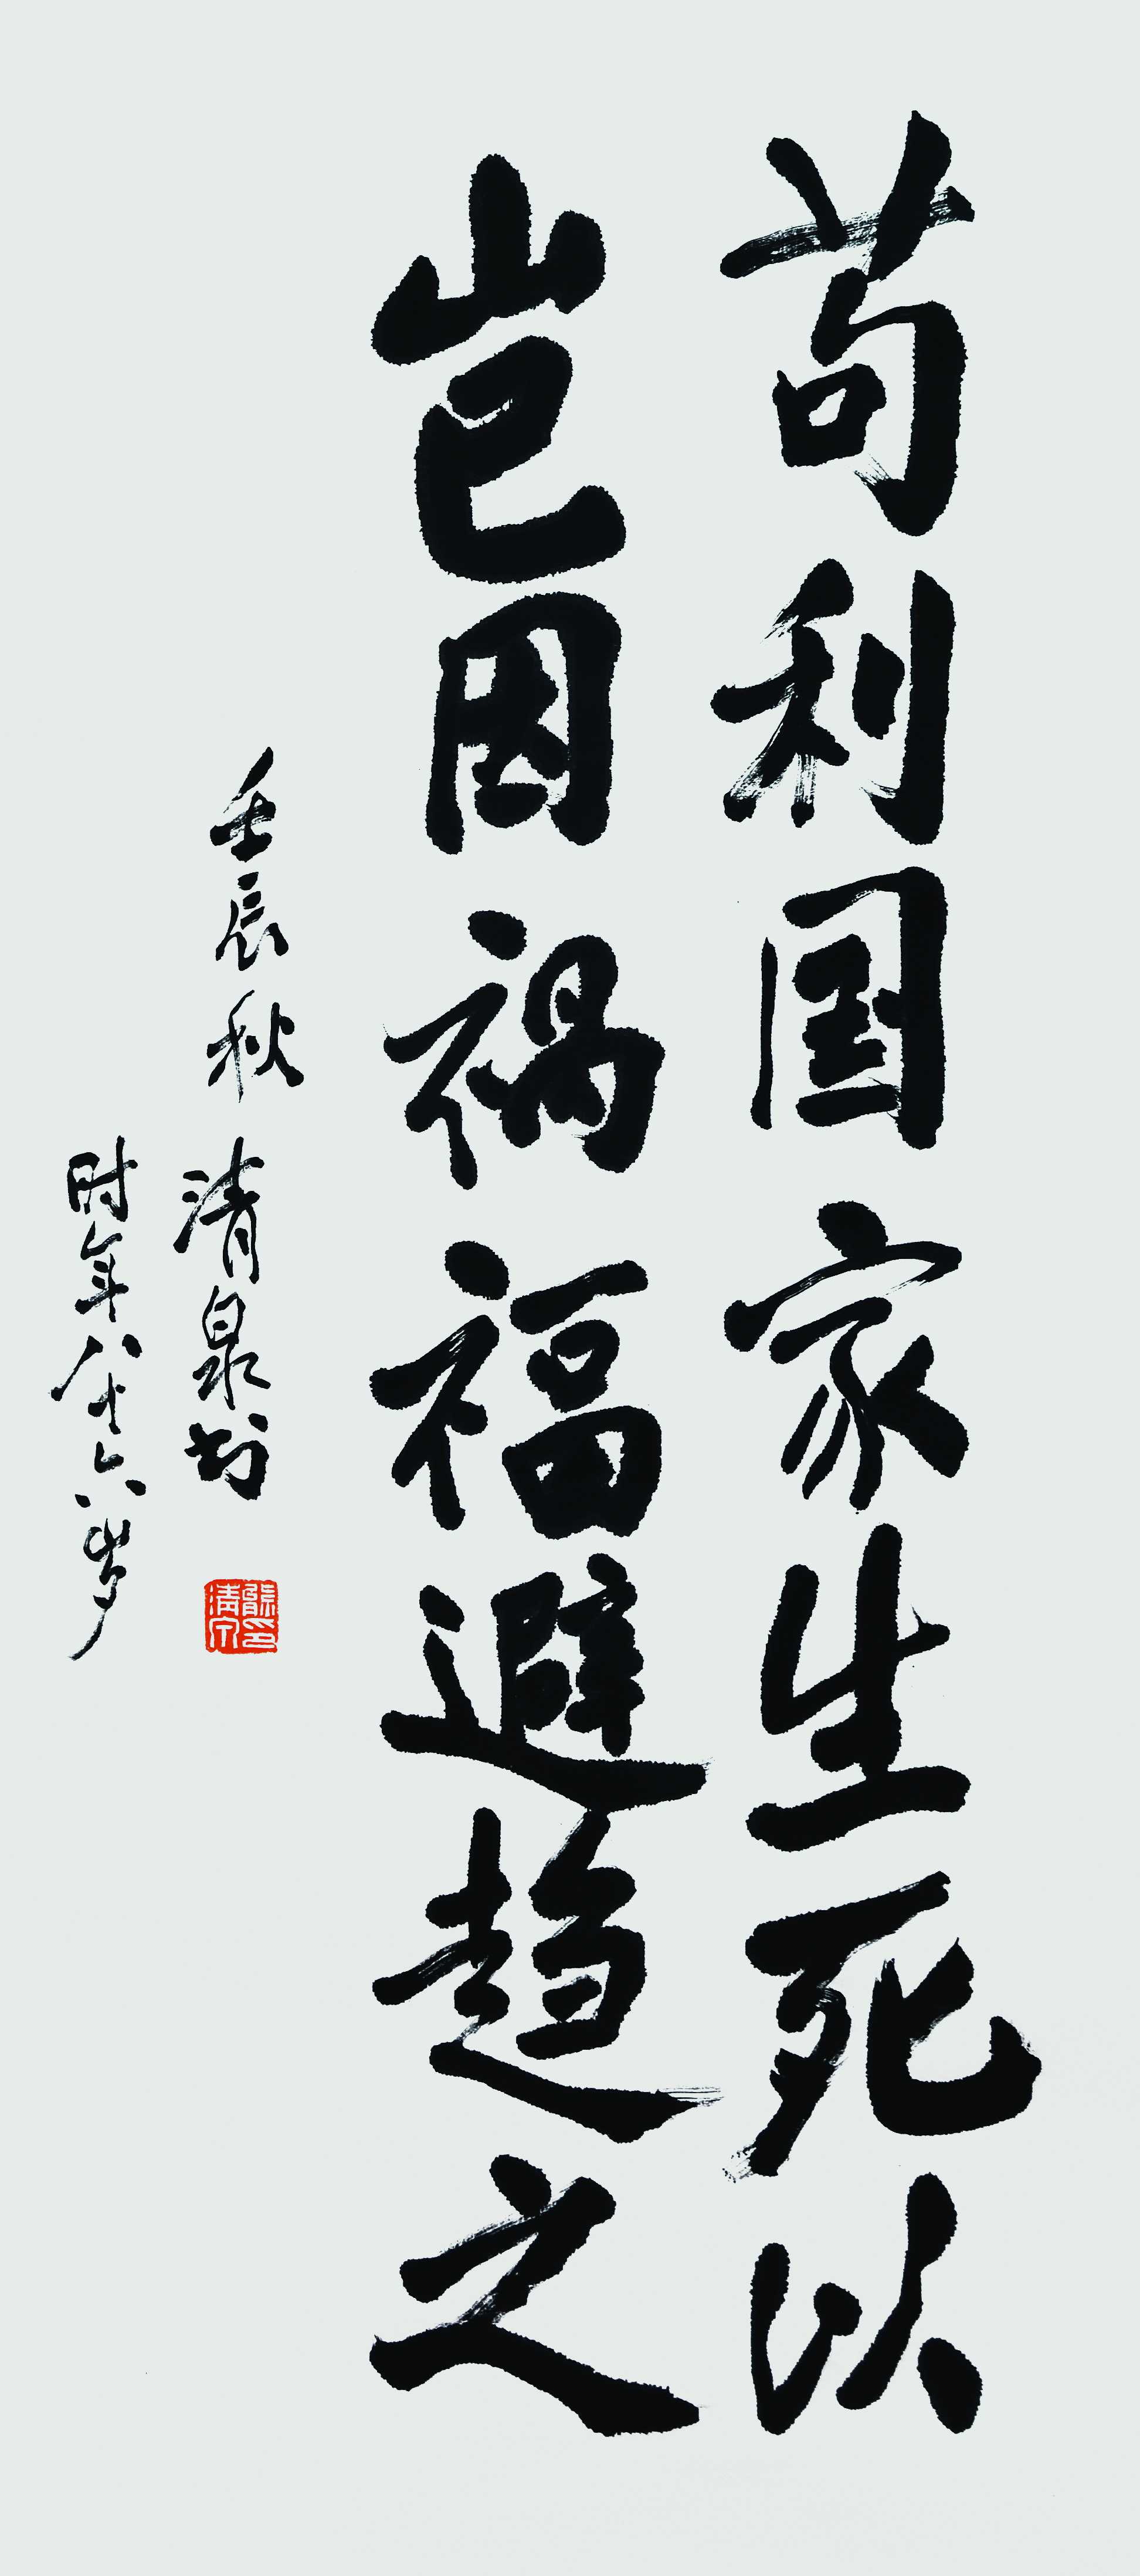 苟利国家生死以
岂因祸福避趋之
壬辰秋 清泉书
时年八十六岁